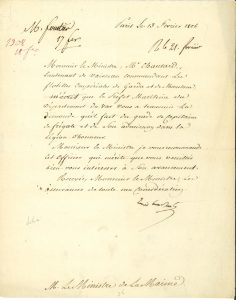 Paris le 13 Février 1806
R. le 21 février
Monsieur le Ministre, Mr. Chautard,
Lieutenant de Vaisseau commandant les
flottilles Impériales de Garde et de
m'écrit que le Préfet Maritime du
Département du Var vous a transmis la
demande qu'il fait du grade de Capitaine
de frégate et de son admission dans la
légion d'honneur.
Monsieur le Ministre, je vous recommande
cet Officier qui mérite que vous vouliez
bien vous intéresser à son avancement.
Recevez, Monsieur le Ministre, les
assurances de toute ma Considération.
M. Le Ministre de la Marine